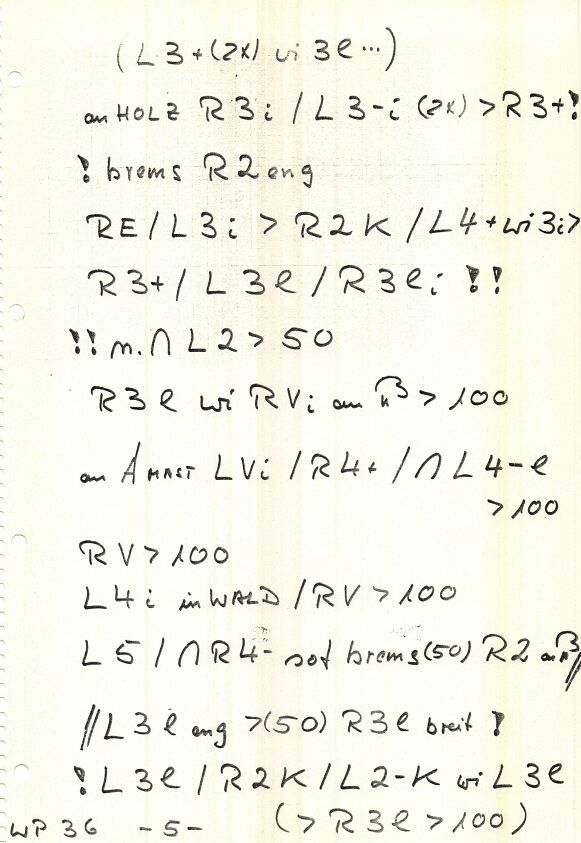 (L3+(2K) wi 3l...)
an HOLZ R3i / L3-i (2K) > R3+!
! brems R2 eng
RE / L3i > R2K / L4+ wi 3i >
R3+ / L3l / R3li !!
!! n. ∩ L2 > 50
R3l wi RVi an > 100
an A MAST LVi / R4+ / ∩ L4-l
> 100
RV > 100
L4i in WALD / RV > 100
L5 / ∩ R4- sof brems (50) R2 an //
// L3l eng > (50) R3l breit !
! L3l / R2K / L2-K wi L3l
WP 36 -5- (> R3l > 100)